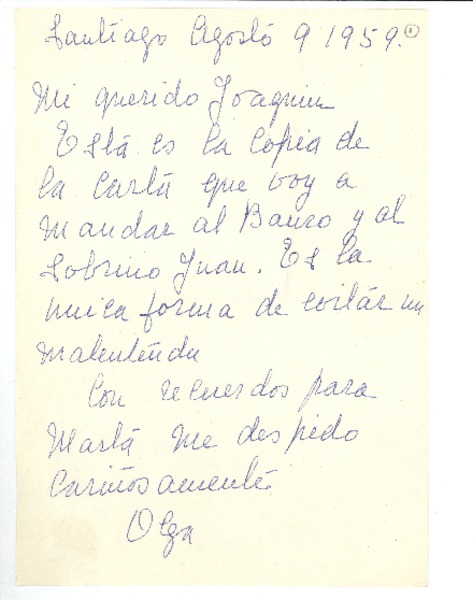 Santiago Agosto 9 1959.
Mi querido Joaquin
Está es la copia de
la carta que voy a
mandar al Banco y al
Sobrino Juan. Es la
unica forma de evitar un
malentendu
Con recuerdos para
Marta me despido
cariñosamente
Olga